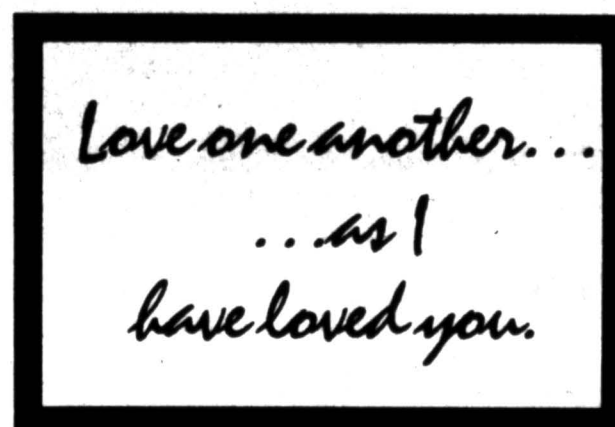 Love one another...
...as I
have loved you.